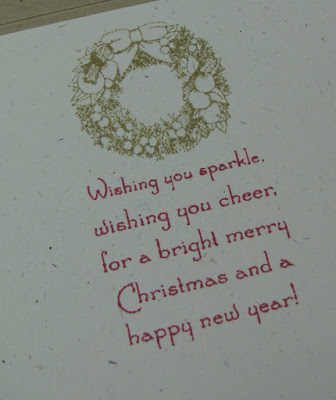 Wishing you sparkle,
wishing you cheer,
for a bright merry
Christmas and a
happy new year!